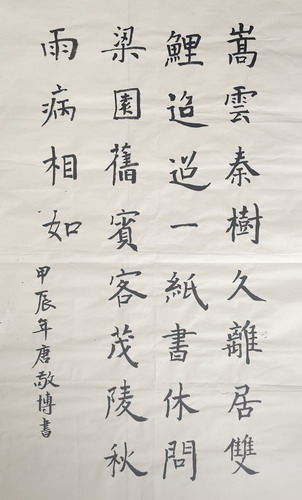 嵩雲秦樹久離居雙
鯉迢迢一紙書休問
梁園舊賓客茂陵秋
雨病相如
甲辰年唐敬博書